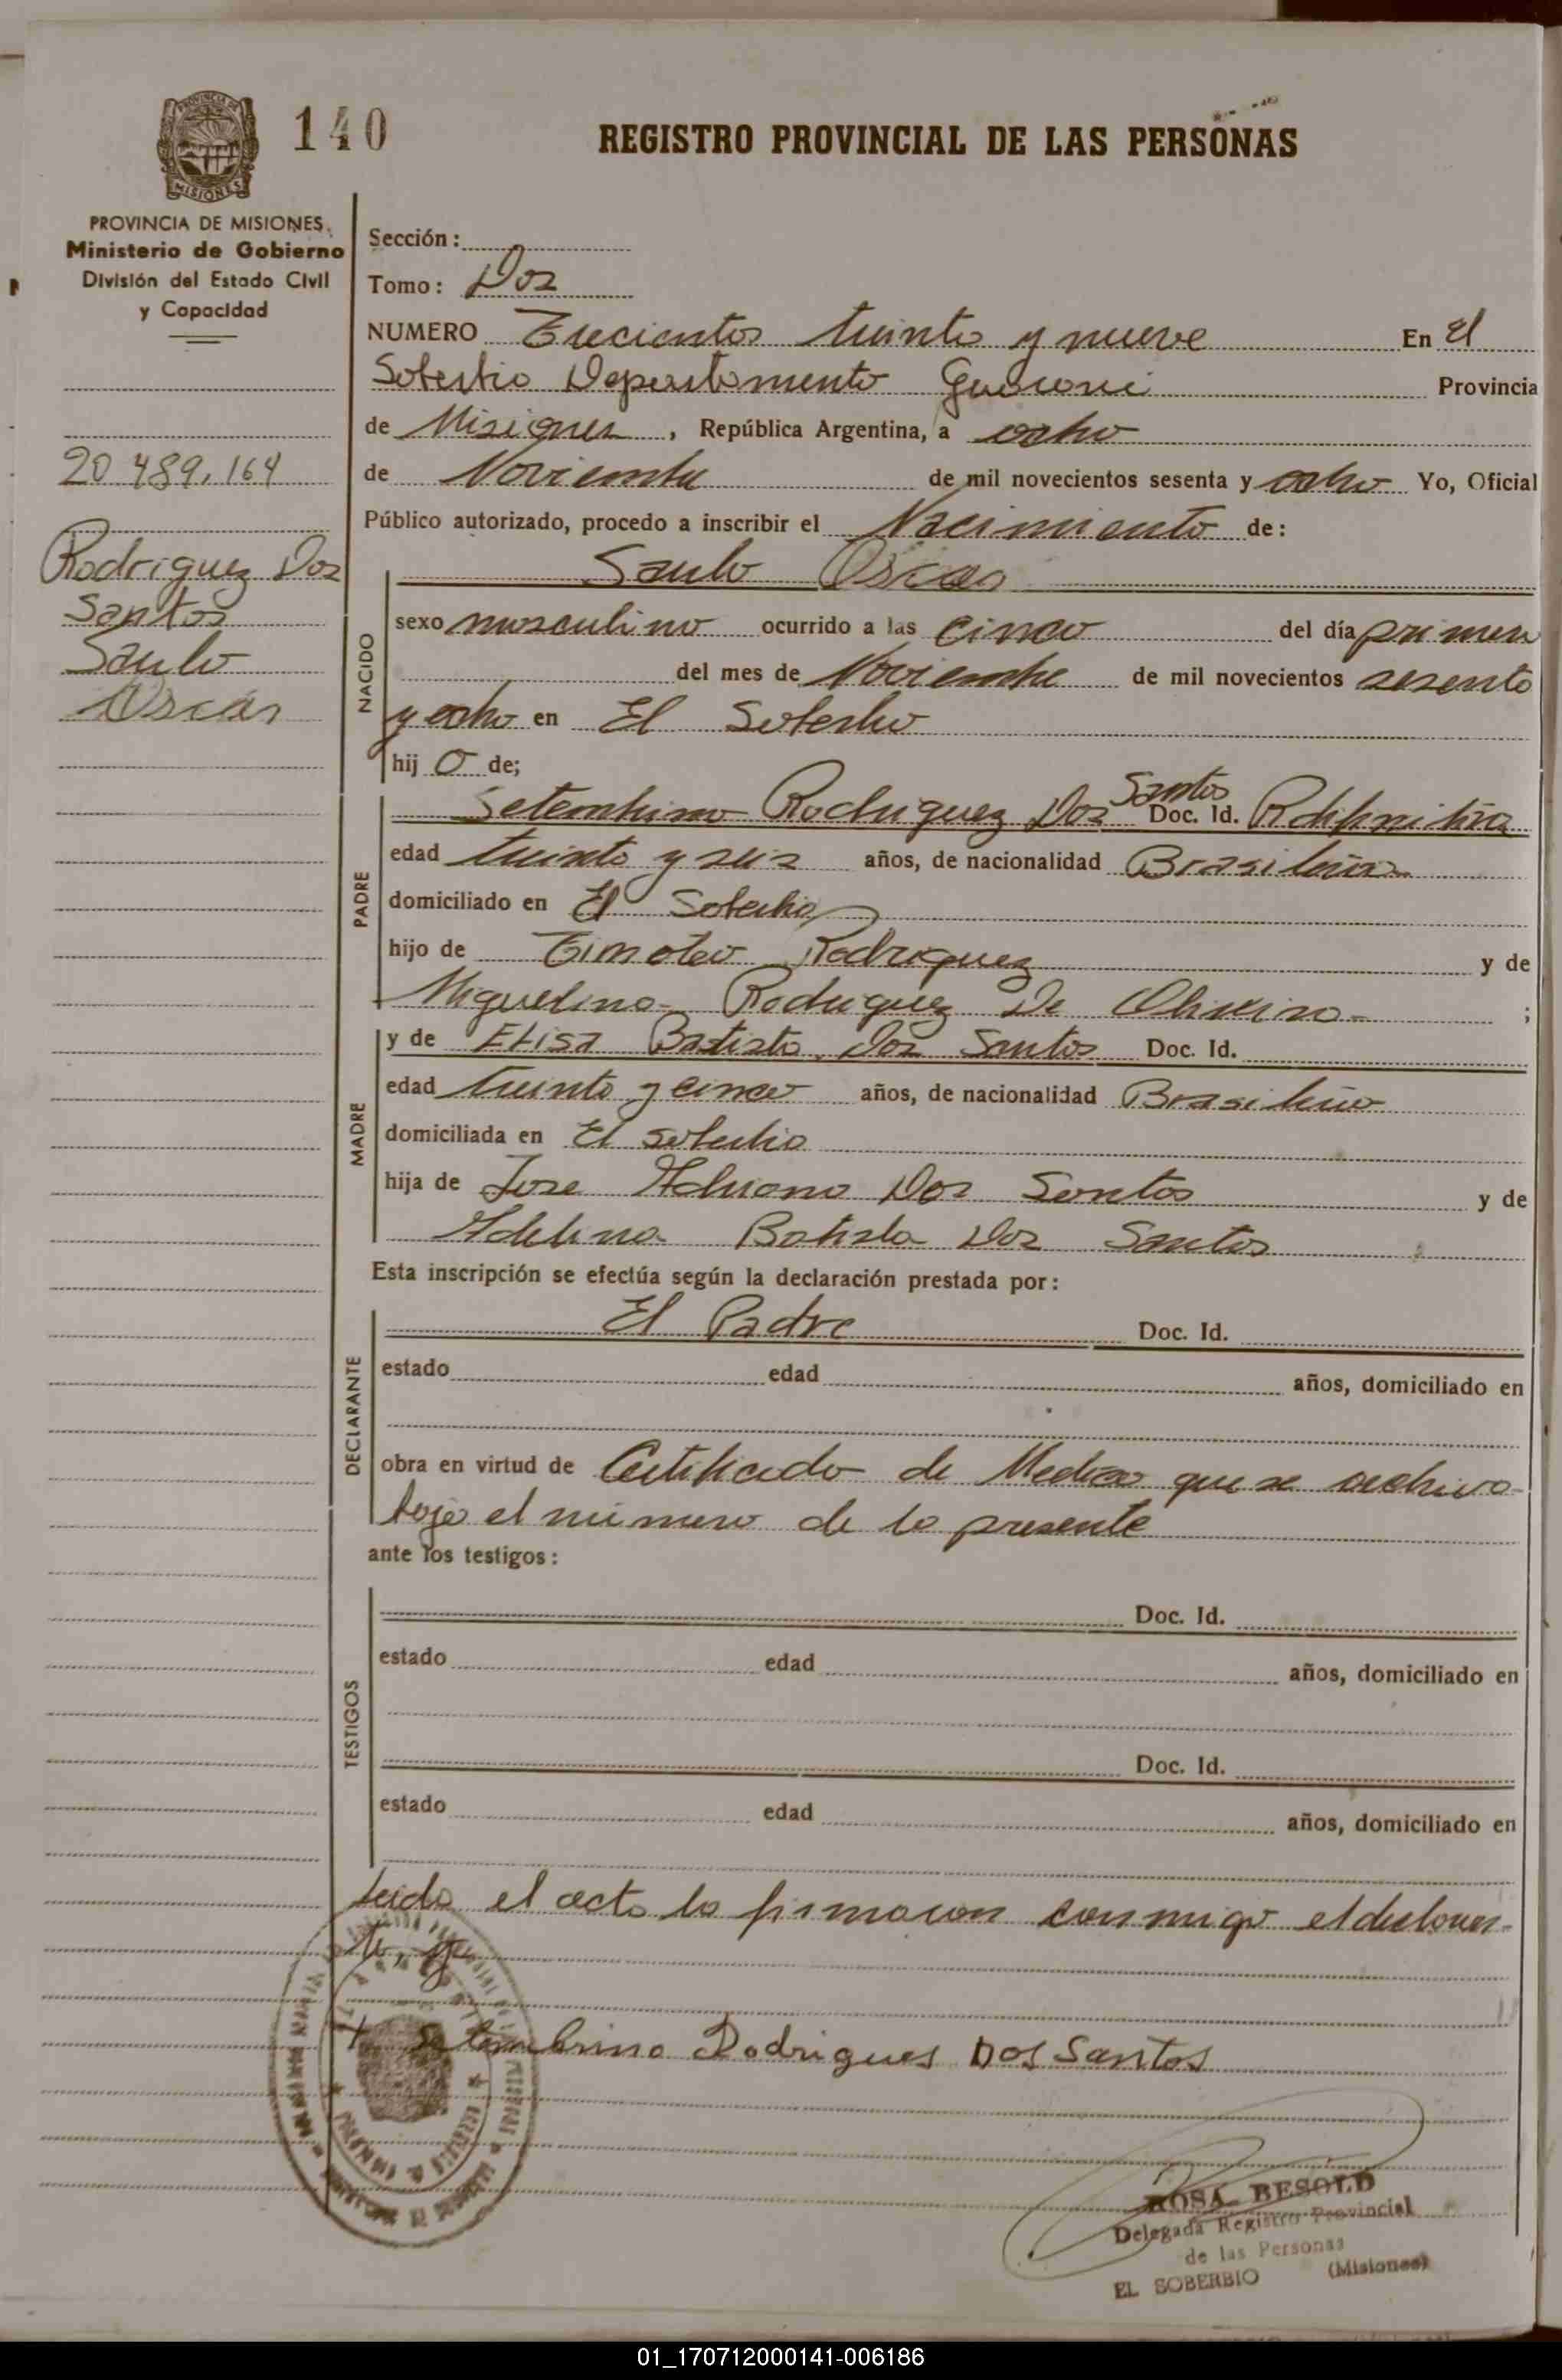 140
REGISTRO PROVINCIAL DE LAS PERSONAS
PROVINCIA DE MISIONES
MISIONES
PROVINCIA DE MISIONES
Ministerio de Gobierno
División del Estado Civil
y Capacidad
20.489.164
Rodriguez Dos
Santos
Saulo
Oscar
Sección:
Tomo: Dos
NUMERO Trecientos treinta y nueve En El
Soberbio Departamento Guarani Provincia
de Misiones, República Argentina, a ocho
de Noviembre de mil novecientos sesenta y ocho Yo, Oficial
Público autorizado, procedo a inscribir el Nacimiento de:
Saulo Oscar
NACIDO
sexo masculino ocurrido a las cinco del día primero
del mes de Noviembre de mil novecientos sesenta
y ocho en El Soberbio
hij o de;
PADRE
Setembrino Rodriguez Dos Santos Doc. Id.
edad treinta y seis años, de nacionalidad Brasileña
domiciliado en El Soberbio
hijo de Timoteo Rodriguez y de
Miguelina Rodriguez De Oliveira ;
MADRE
y de Elisa Batista Dos Santos Doc. Id.
edad treinta y cinco años, de nacionalidad Brasileña
domiciliada en El Soberbio
hija de Jose Adriano Dos Santos y de
Adelina Batista Dos Santos
Esta inscripción se efectúa según la declaración prestada por:
DECLARANTE
El Padre Doc. Id.
estado edad años, domiciliado en
obra en virtud de Certificado de Medico que se archiva
bajo el numero de la presente
ante los testigos:
TESTIGOS
Doc. Id.
estado edad años, domiciliado en
Doc. Id.
estado edad años, domiciliado en
Leida el acta la firmaron conmigo el declaran-
te,
Setembrino Rodrigues Dos Santos
ROSA BESOLD
Delegada Registro Provincial
de las Personas
EL SOBERBIO (Misiones)
01_170712000141-006186